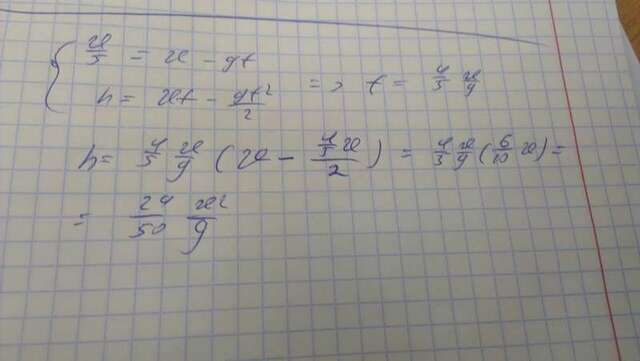 { v/5 = v - gt
h = vt - gt²/2 => t = 4/5 v/g
h = 4/5 v/g (v - 4/5 v / 2) = 4/5 v/g (6/10 v) =
= 24/50 v²/g